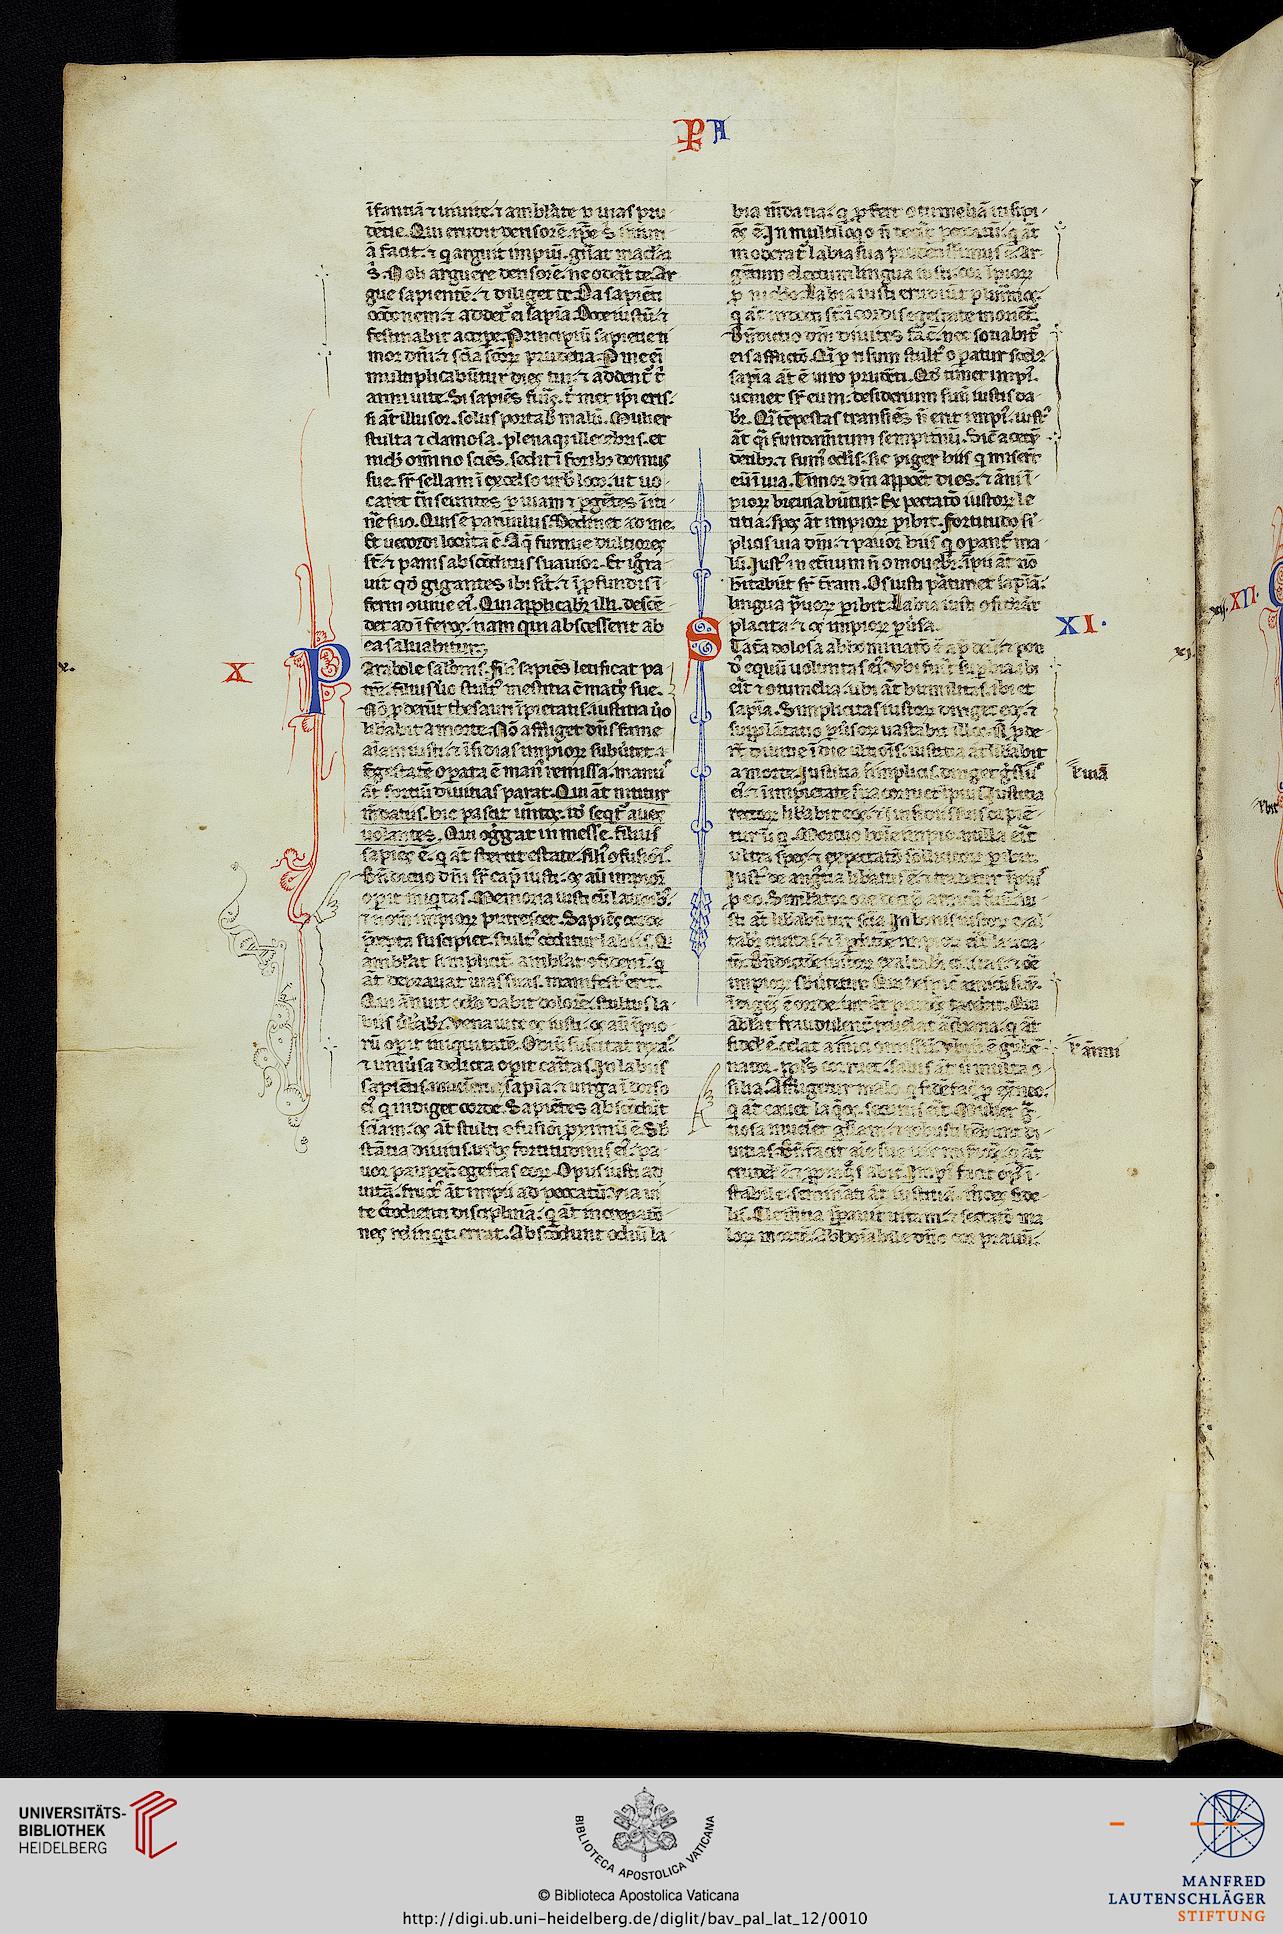 PA
īfantiā ⁊ uiuite. ⁊ amblate p uias pru
dētie. Qui erudit derisorē. ipse s iniuri
ā facit. ⁊ q arguit impiū. gn̄at maclā
s. Noli arguere derisorē. ne oderit te. Ar
gue sapientē. ⁊ diliget te. Da sapiēti
occōnem. ⁊ addet ei sapīa. Doce iustū. ⁊
festinabit accipe. Principiū sapientie ti
mor dn̄i. ⁊ sciā scōꝝ prudētia. P me eī
multiplicabūtur dies tui. ⁊ addent t
anni uite. Si sapiēs fuis. t met ipi eris.
si āt illusor. solus portab malū. Mulier
stulta ⁊ clamosa. plenaq illecebris. et
nichil omnino sciēs. sedit ī forib domus
sue. sr sellam ī excelso urb loco. ut uo
caret trāseuntes p uiam ⁊ pgētes ītin
ne suo. Quis ē paruulus. declinet ad me.
Et uecordi locuta ē. Aq furtiue dulciores
st. ⁊ panis absconditus suauior. Et igra
uit qd gigantes ibi sint. ⁊ ī pfundis ī
ferni ouiue ei. Qui applicabit illi. descē
det ad īferos. nam qui abscesserit ab
ea saluabitur.
X
Parabole salomis. Fili sapiēs letificat pa
trē. filius uo stult mestitia ē matris sue.
Nō pderūt thesauri īpietatis. iustitia uo
libabit a morte. Nō affliget dn̄s fame
aīam iusti. ⁊ īsidias impioꝝ subūtet.
Egestatē opata ē man remissa. manus
āt fortiū diuitias parat. Qui āt nititur
mdatiis. hic pascit uentos. id seqt aues
uolantes. Qui ogrgat in messe. filius
sapiēs ē. q āt stertit estate. fili ofusiōis.
Bn̄dictio dn̄i sr cap iusti. os aū impioꝝ
opit iniqtas. Memoria iusti cū laudib.
⁊ nom impioꝝ putrescet. Sapiēs corde
pcepta suscipiet. stult ceditur labiis. Q
amblat simplicit. amblat ofidenter. q
āt deprauat uias suas. manifest erit.
Qui ānuit oclo dabit dolorē. stultus la
biis ūbabit. Vena uite os iusti. os aū īpio
rū opit iniquitatē. Odiū suscitat rixas.
⁊ uniūsa delicta opit caritas. In labiis
sapiētis inuenitur sapīa. ⁊ uirga ī dorso
ei q indiget corde. Sapiētes abscōdūt
sciam. os āt stulti ofusioni pximū ē. Sb
stātia diuitis. urbs fortitudinis ei. pa
uor paupeꝝ egestas eoꝝ. Opus iusti ad
uitā. fruct āt impii ad peccatū. Via ui
te custodienti disciplinā. q āt increpatio
nes relinqt. errat. Abscōdunt odiū la
bia mdatia. q pfert otumeliā insipi
ēs ē. In multiloqo n̄ deerit peccatū. q āt
moderat labia sua prudentissimus ē. Ar
gētum electum lingua iusti. cor īpioꝝ
p nichilo. Labia iusti erudiūt plurimos.
q āt indocti st ī cordis egestate morient.
Bn̄dictio dn̄i diuites facit. nec sociabit
eis afflictio. Q̄i p risum stult opatur scel.
sapīa āt ē uiro prudēti. Qd timet impi.
ueniet sr eum. desiderium suū iustis da
bit. Q̄i tēpestas transiēs n̄ erit impi. iust
āt q̄i fundamtum sempitnū. Sic acetū
dētib. ⁊ fum oclis. sic piger hiis q miserūt
eū ī uia. Timor dn̄i apponet dies. ⁊ āni ī
pioꝝ breuiabūtur. Expectatio iustoꝝ le
titia. spes āt impioꝝ pibit. Fortitudo sī
plicis uia dn̄i. ⁊ pauor hiis q opant ma
lū. Iust in etnum n̄ omouebit. īpii āt nō
hitabūt sr tram. Os iusti pturiet sapīa.
lingua prauoꝝ pibit. Labia iusti osiderāt
placita. ⁊ os impioꝝ puersa.
XI.
Statera dolosa abhominatio ē ap dn̄. ⁊ pon
d equū uoluntas ei. Vbi fuit supbia. ibi
erit ⁊ otumelia. ubi āt humilitas. ibi et
sapīa. Simplicitas iustoꝝ diriget eos. ⁊
supplātatio puersoꝝ uastabit illos. N̄ pde
rūt diuitie ī die ultiōis. iustitia āt libabit
a morte. Iustitia simplicis diriget gssū
ei. ⁊ ī impietate sua corruet īpius. Iustitia
rectoꝝ libabit eos. ⁊ ī insidiis suis capiē
tur iniq. Mortuo hoīe impio. nulla erit
ultra spes. ⁊ expectatio sollicitoꝝ pibit.
Iust de angustia libatus ē. ⁊ tradetur īpius
p eo. Simlator ore decipit amicū suū. iu
sti āt libabūtur sciā. In bonis iustoꝝ exal
tabit ciuitas. ⁊ ī pditiōe impioꝝ erit lauda
tio. Bn̄dictiōe iustoꝝ exaltabit ciuitas. ⁊ ore
impioꝝ sbūtetur. Qui despicit amicū suū.
īdigēs ē corde. uir āt prudēs tacebit. Qui
āblat fraudulent reuelat archana. q āt
fidel ē. celat amici omissū. Vbi n̄ ē guber
nator. ppls corruet. salus āt ū multa o
silia. Affligetur malo. q fidē facit p extneo.
q āt cauet laqos. securus erit. Mulier gra
tiosa inueniet gliam. ⁊ robusti hēbunt di
uitias. Bn̄ facit aīe sue uir miscors. q āt
crudelis ē ⁊ ppinqs abicit. Impi facit op ī
stabile. semināti āt iustitiā. merces fide
lis. Clemtia pparat uitam. ⁊ sectatio ma
loꝝ mortē. Abhoīabile dn̄o cor prauū.
XII.
UNIVERSITÄTS-
BIBLIOTHEK
HEIDELBERG
BIBLIOTECA APOSTOLICA VATICANA
© Biblioteca Apostolica Vaticana
http://digi.ub.uni-heidelberg.de/diglit/bav_pal_lat_12/0010
MANFRED
LAUTENSCHLÄGER
STIFTUNG